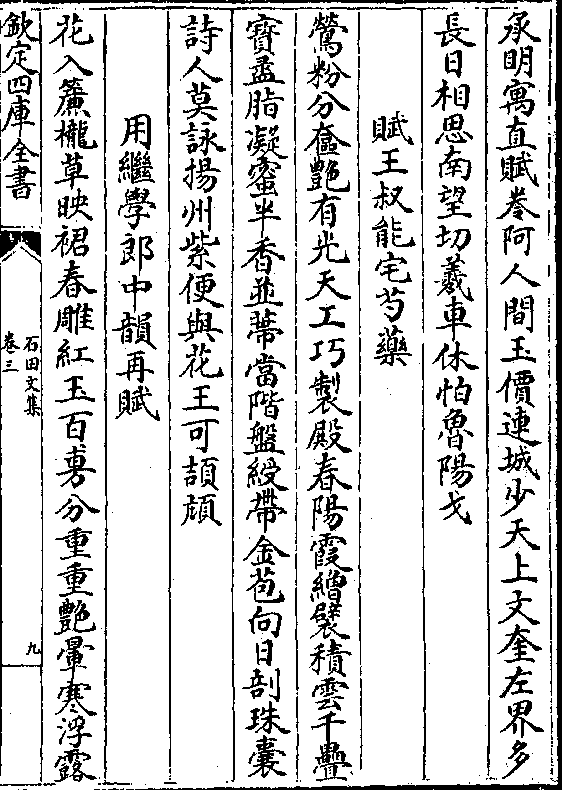 承明寓直賦卷阿人間玉價連城少天上文奎左界多
長日相思南望切羲車休怕魯陽戈
賦王叔能宅芍藥
鶯粉分奩艶有光天工巧製殿春陽霞繒襞積雲千疊
寳盝脂凝蜜半香並蔕當階盤綬帶金苞向日剖珠囊
詩人莫詠揚州紫便與花王可頡頏
用繼學郎中韻再賦
花入簾櫳草映裙春雕紅玉百
分重重艶暈寒浮露
欽定四庫全書
石田文集
卷三
九